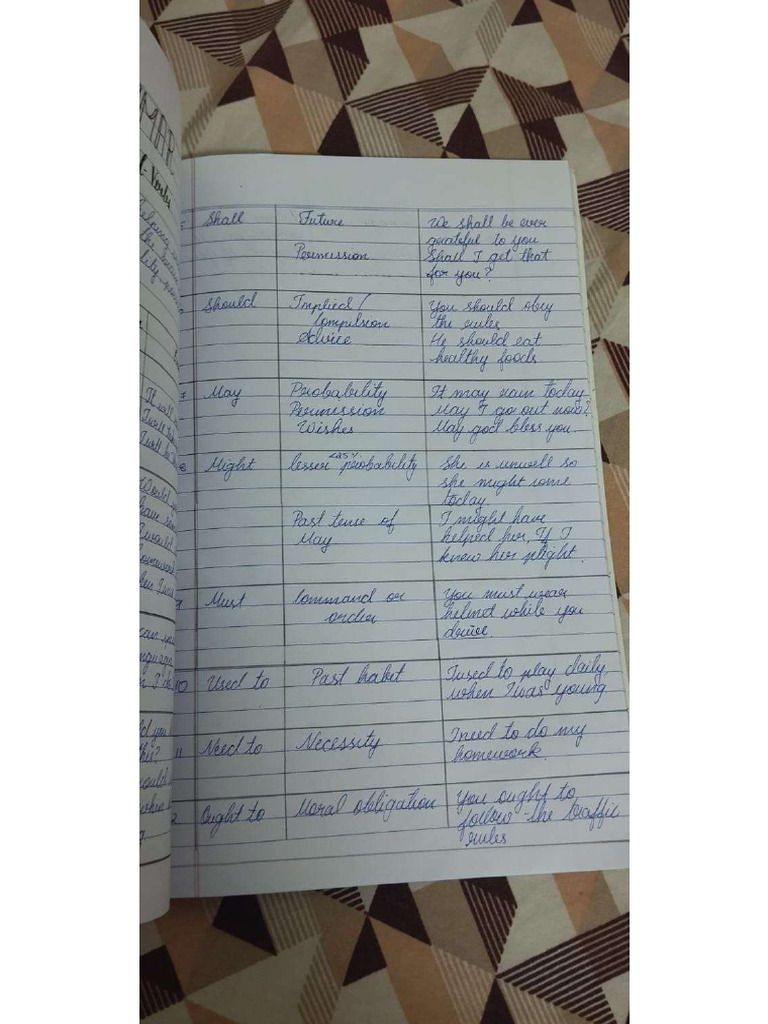 MMAR
Verbs
Helping
the
lity
5 Shall Future We shall be ever
grateful to you
Permission Shall I get that
for you?
Should Implied / You should obey
Compulsion the rules
Advice He should eat
healthy foods
7 May Probability It may rain today
Permission May I go out now?
Wishes May god bless you.
8 Might lesser probability She is unwell so
she might come
today.
Past tense of I might have
May helped her, If I
knew her plight.
9 Must Command or You must wear
order helmet while you
drive.
10 Used to Past habit I used to play daily,
when I was young
11 Need to Necessity I need to do my
homework.
2 Ought to Moral obligation You ought to
follow the traffic
rules